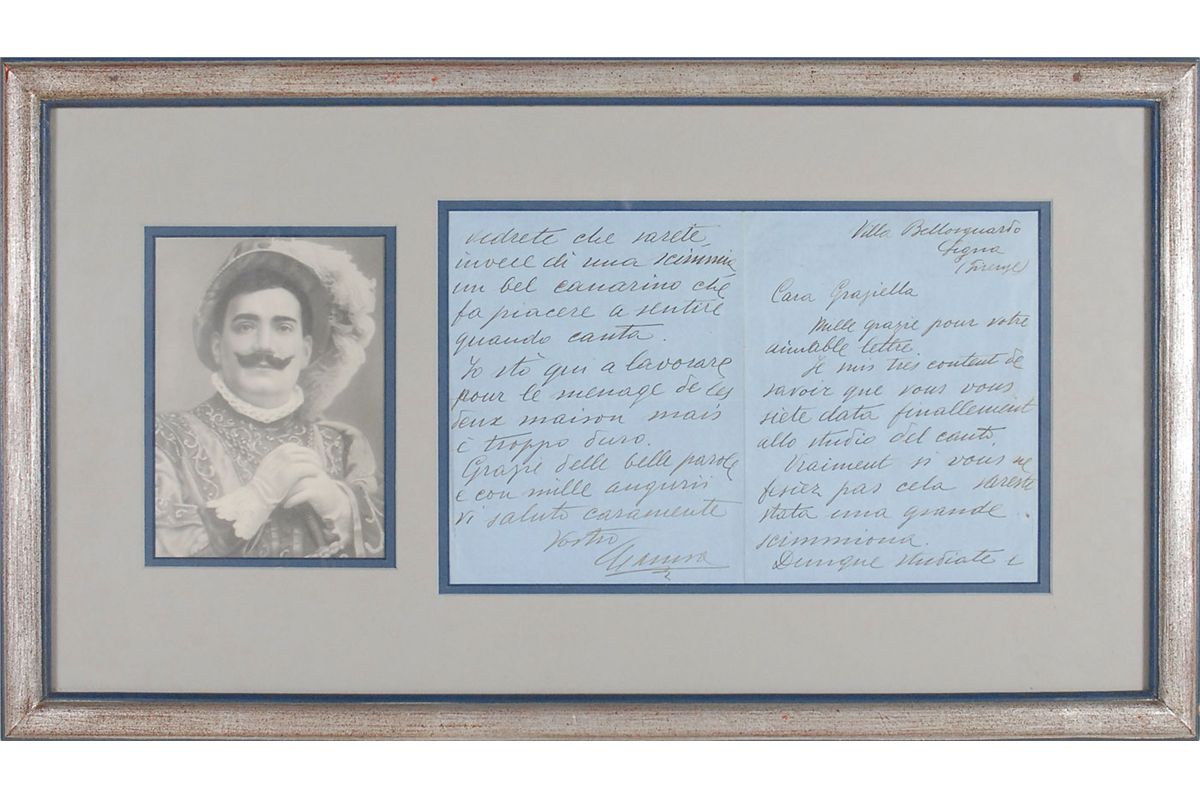 Villa Bellosguardo
Signa
(Firenze)
Cara Graziella
Mille grazie pour votre
aimable lettre
Je suis très content de
savoir que vous vous
siete data finallement
allo studio del canto.
Vraiment si vous ne
fesiez pas cela sareste
stata una grande
scimmiona.
Dunque studiate e
vedrete che sarete,
invece di una scimmia
un bel canarino che
fa piacere a sentire
quando canta.
Io stò qui a lavorare
pour le menage de les
deux maison mais
è troppo duro.
Grazie delle belle parole
e con mille augurii
vi saluto caramente
Vostro